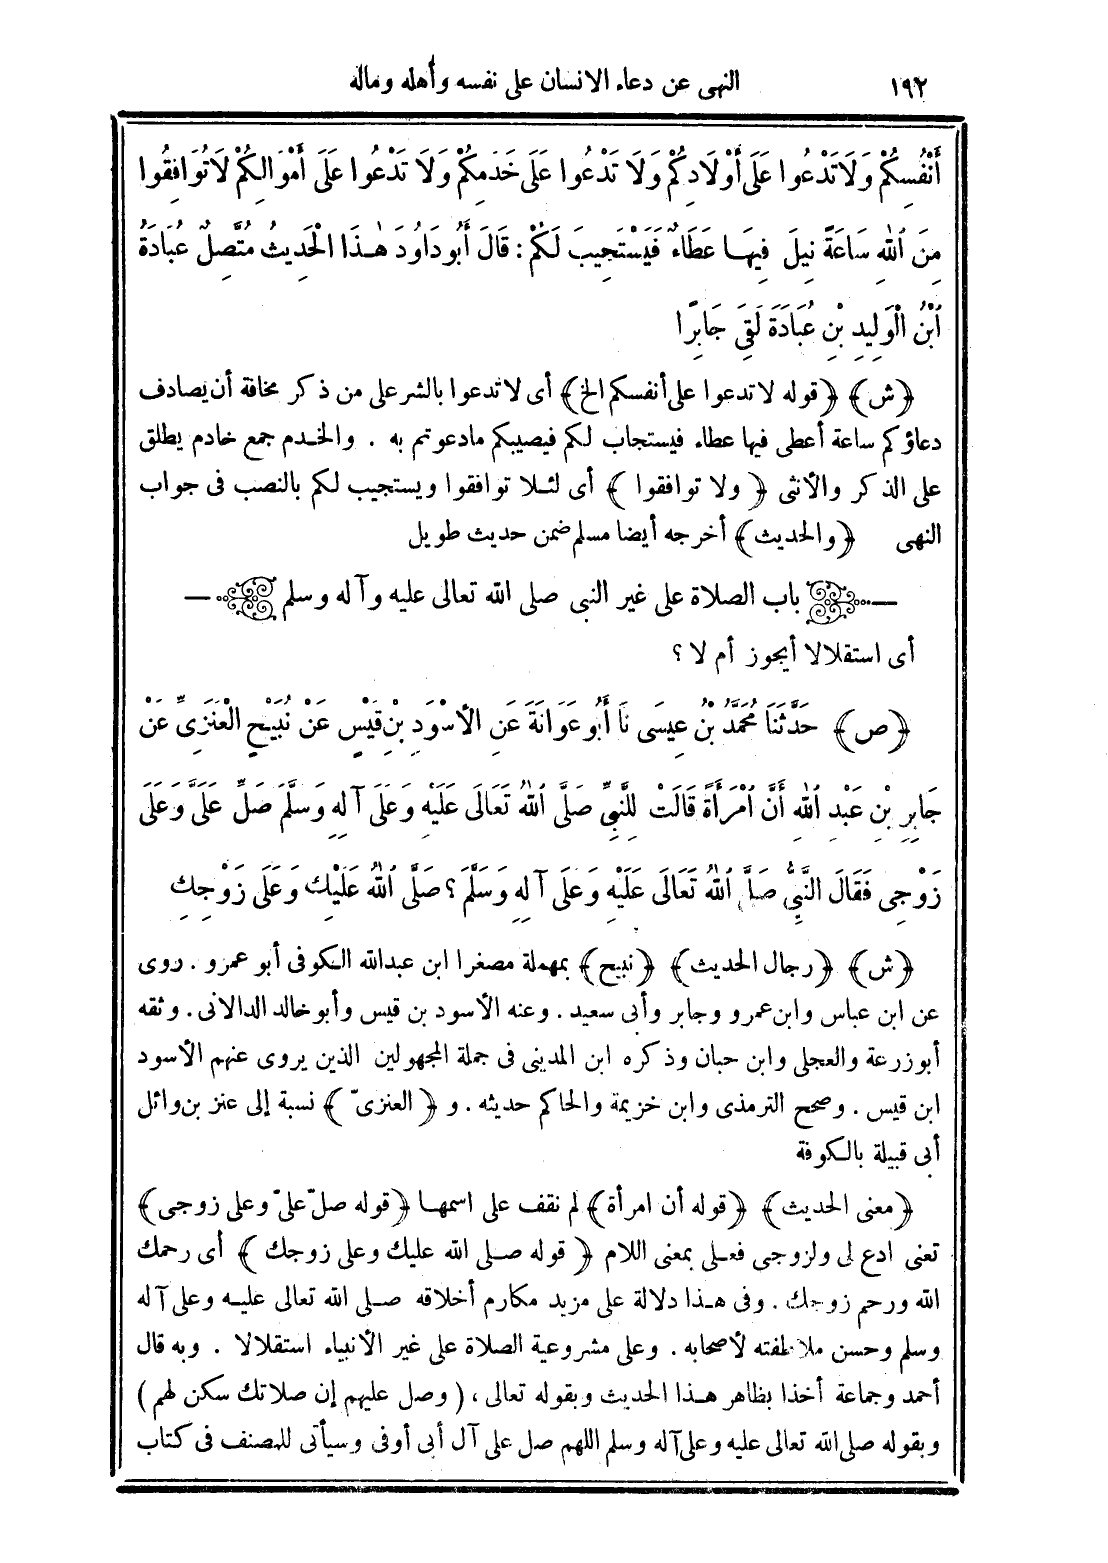 ١٩٢ النهى عن دعاء الانسان على نفسه وأهله وماله
أَنْفُسِكُمْ وَلَا تَدْعُوا عَلَى أَوْلَادِكُمْ وَلَا تَدْعُوا عَلَى خَدَمِكُمْ وَلَا تَدْعُوا عَلَى أَمْوَالِكُمْ لَا تُوَافِقُوا
مِنَ ٱللهِ سَاعَةً نِيلَ فِيهَا عَطَاءٌ فَيَسْتَجِيبَ لَكُمْ : قَالَ أَبُو دَاوُدَ هٰذَا الْحَدِيثُ مُتَّصِلٌ عُبَادَةُ
ٱبْنُ الْوَلِيدِ بْنِ عُبَادَةَ لَقِىَ جَابِرًا
﴿ش﴾ ﴿قوله لا تدعوا على أنفسكم الخ﴾ أى لا تدعوا بالشر على من ذكر مخافة أن يصادف
دعاؤكم ساعة أعطى فيها عطاء فيستجاب لكم فيصيبكم مادعوتم به . والخدم جمع خادم يطلق
على الذكر والأنثى ﴿ ولا توافقوا ﴾ أى لئلا توافقوا ويستجيب لكم بالنصب فى جواب
النهى ﴿والحديث﴾ أخرجه أيضا مسلم ضمن حديث طويل
— باب الصلاة على غير النبى صلى الله تعالى عليه وآله وسلم —
أى استقلالا أيجوز أم لا ؟
﴿ص﴾ حَدَّثَنَا مُحَمَّدُ بْنُ عِيسَى نَا أَبُو عَوَانَةَ عَنِ الْأَسْوَدِ بْنِ قَيْسٍ عَنْ نُبَيْحٍ الْعَنَزِىِّ عَنْ
جَابِرِ بْنِ عَبْدِ ٱللهِ أَنَّ ٱمْرَأَةً قَالَتْ لِلنَّبِىِّ صَلَّى ٱللهُ تَعَالَى عَلَيْهِ وَعَلَى آلِهِ وَسَلَّمَ صَلِّ عَلَىَّ وَعَلَى
زَوْجِى فَقَالَ النَّبِىُّ صَلَّى ٱللهُ تَعَالَى عَلَيْهِ وَعَلَى آلِهِ وَسَلَّمَ ؟ صَلَّى ٱللهُ عَلَيْكِ وَعَلَى زَوْجِكِ
﴿ش﴾ ﴿رجال الحديث﴾ ﴿نبيح﴾ بمهملة مصغرا ابن عبدالله الكوفى أبو عمرو . روى
عن ابن عباس وابن عمرو وجابر وأبى سعيد . وعنه الأسود بن قيس وأبو خالد الدالانى . وثقه
أبوزرعة والعجلى وابن حبان وذكره ابن المدينى فى جملة المجهولين الذين يروى عنهم الأسود
ابن قيس . وصحح الترمذى وابن خزيمة والحاكم حديثه . و ﴿ العنزىّ ﴾ نسبة إلى عنز بن وائل
أبى قبيلة بالكوفة
﴿معنى الحديث﴾ ﴿قوله أن امرأة﴾ لم نقف على اسمها ﴿قوله صلّ علىّ وعلى زوجى﴾
تعنى ادع لى ولزوجى فعلى بمعنى اللام ﴿ قوله صلى الله عليك وعلى زوجك ﴾ أى رحمك
الله ورحم زوجك . وفى هذا دلالة على مزيد مكارم أخلاقه صلى الله تعالى عليه وعلى آله
وسلم وحسن ملاطفته لأصحابه . وعلى مشروعية الصلاة على غير الأنبياء استقلالا . وبه قال
أحمد وجماعة أخذا بظاهر هذا الحديث وبقوله تعالى ، ( وصل عليهم إن صلاتك سكن لهم )
وبقوله صلى الله تعالى عليه وعلى آله وسلم اللهم صل على آل أبى أوفى وسيأتى للمصنف فى كتاب